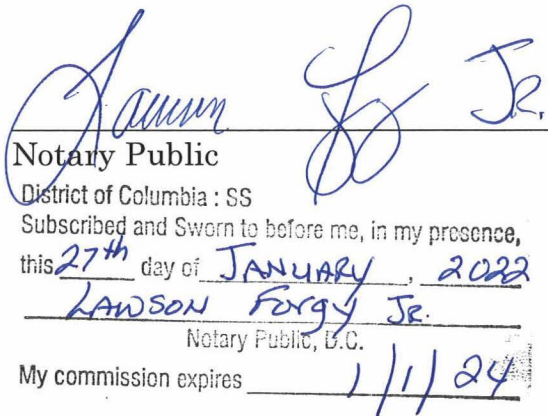 Lawson Jr.
Notary Public
District of Columbia : SS
Subscribed and Sworn to before me, in my presence,
this 27th day of JANUARY, 2022
LAWSON Forgy JR.
Notary Public, D.C.
My commission expires 1/1/24